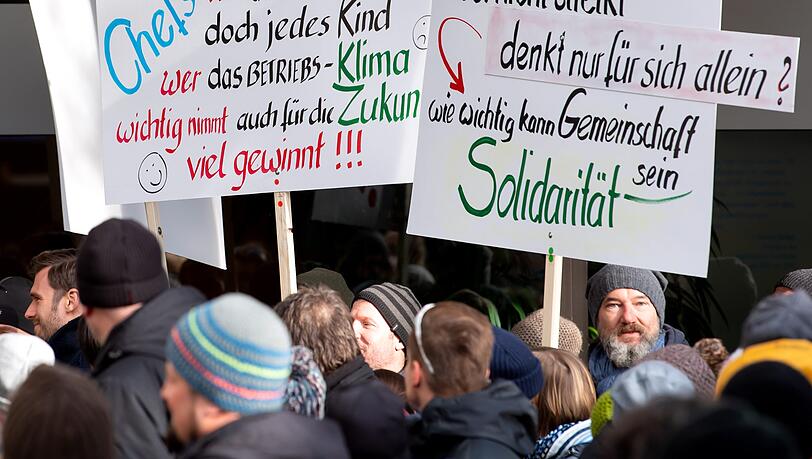 Chefs
doch jedes Kind
wer das BETRIEBS-Klima
wichtig nimmt auch für die Zukun
viel gewinnt !!!
streikt
denkt nur für sich allein ?
wie wichtig kann Gemeinschaft
sein
Solidarität